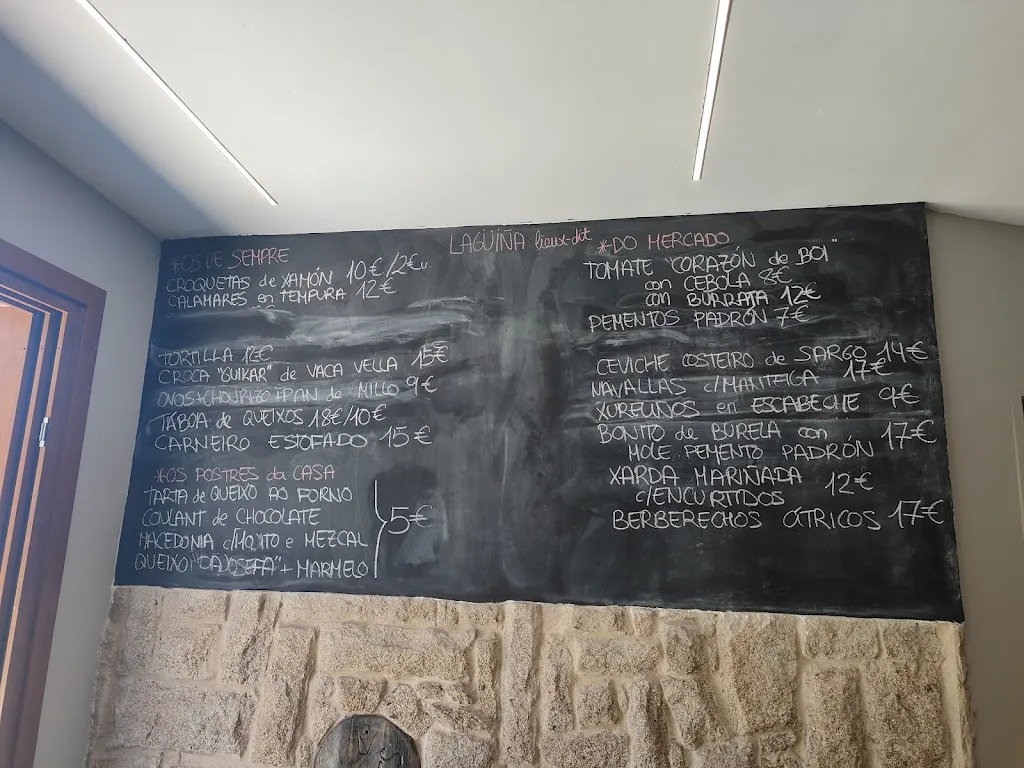 LAGÜIÑA lieux-dit
*OS DE SEMPRE
CROQUETAS de XAMÓN 10€/2€u.
CALAMARES en TEMPURA 12€
TORTILLA 12€
CROCA "GUIKAR" de VACA VELLA 15€
OVOS+CHOURIZO+PAN de MILLO 9€
TÁBOA de QUEIXOS 18€/10€
CARNEIRO ESTOFADO 15€
*OS POSTRES da CASA
TARTA de QUEIXO AO FORNO
COULANT de CHOCOLATE
MACEDONIA c/MOXITO e MEZCAL
QUEIXO "DA XOSEFA" + MARMELO
5€
*DO MERCADO
TOMATE "CORAZÓN de BOI"
con CEBOLA 8€
con BURRATA 12€
PEMENTOS PADRÓN 7€
CEVICHE COSTEIRO de SARGO 14€
NAVALLAS c/MANTEIGA 17€
XURELIÑOS en ESCABECHE 9€
BONITO de BURELA con 17€
MOLE PEMENTO PADRÓN
XARDA MARIÑADA 12€
c/ENCURTIDOS
BERBERECHOS CÍTRICOS 17€